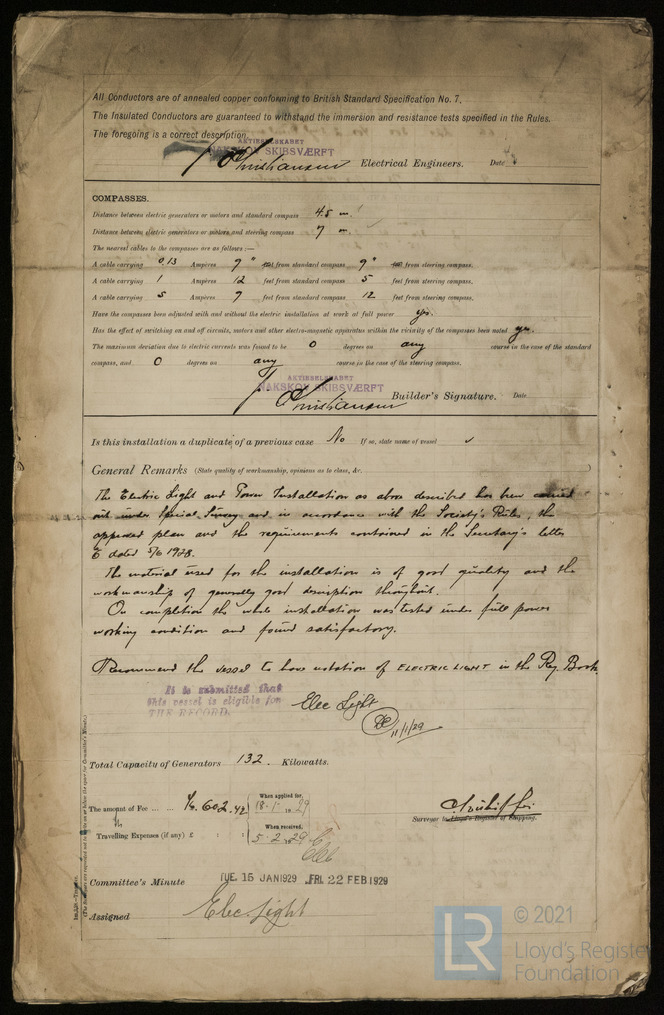 All Conductors are of annealed copper conforming to British Standard Specification No. 7.
The Insulated Conductors are guaranteed to withstand the immersion and resistance tests specified in the Rules.
The foregoing is a correct description.
AKTIESELSKABET
NAKSKOV SKIBSVÆRFT
Christiansen Electrical Engineers. Date
COMPASSES.
Distance between electric generators or motors and standard compass 45 m.
Distance between electric generators or motors and steering compass 7 m.
The nearest cables to the compasses are as follows :—
A cable carrying 0,13 Ampères 9" feet from standard compass 9" feet from steering compass.
A cable carrying 1 Ampères 12 feet from standard compass 5 feet from steering compass.
A cable carrying 5 Ampères 9 feet from standard compass 12 feet from steering compass.
Have the compasses been adjusted with and without the electric installation at work at full power yes.
Has the effect of switching on and off circuits, motors and other electro-magnetic apparatus within the vicinity of the compasses been noted yes.
The maximum deviation due to electric currents was found to be 0 degrees on any course in the case of the standard
compass, and 0 degrees on any course in the case of the steering compass.
AKTIESELSKABET
NAKSKOV SKIBSVÆRFT
Christiansen Builder's Signature. Date
Is this installation a duplicate of a previous case No If so, state name of vessel ✓
General Remarks (State quality of workmanship, opinions as to class, &c. )
The Electric Light and Power Installation as above described has been carried
out under Special Survey and in accordance with the Society's Rules, the
approved plan and the requirements contained in the Secretary's letter
E dated 5/6 1928.
The material used for the installation is of good quality and the
workmanship of generally good description throughout.
On completion the whole installation was tested under full power
working condition and found satisfactory.
Recommend the vessel to have notation of ELECTRIC LIGHT in the Reg. Book.
It is submitted that
this vessel is eligible for
THE RECORD. Elec Light
11/1/29
Total Capacity of Generators 132. Kilowatts.
The amount of Fee ... ... 602.42 When applied for, 18.1.1929
Travelling Expenses (if any) £ : : When received, 5.2.1929
Surveyor to Lloyd's Register of Shipping.
Committee's Minute TUE 15 JAN 1929 FRI. 22 FEB 1929
Assigned Elec Light
© 2021
LR Lloyd's Register
Foundation